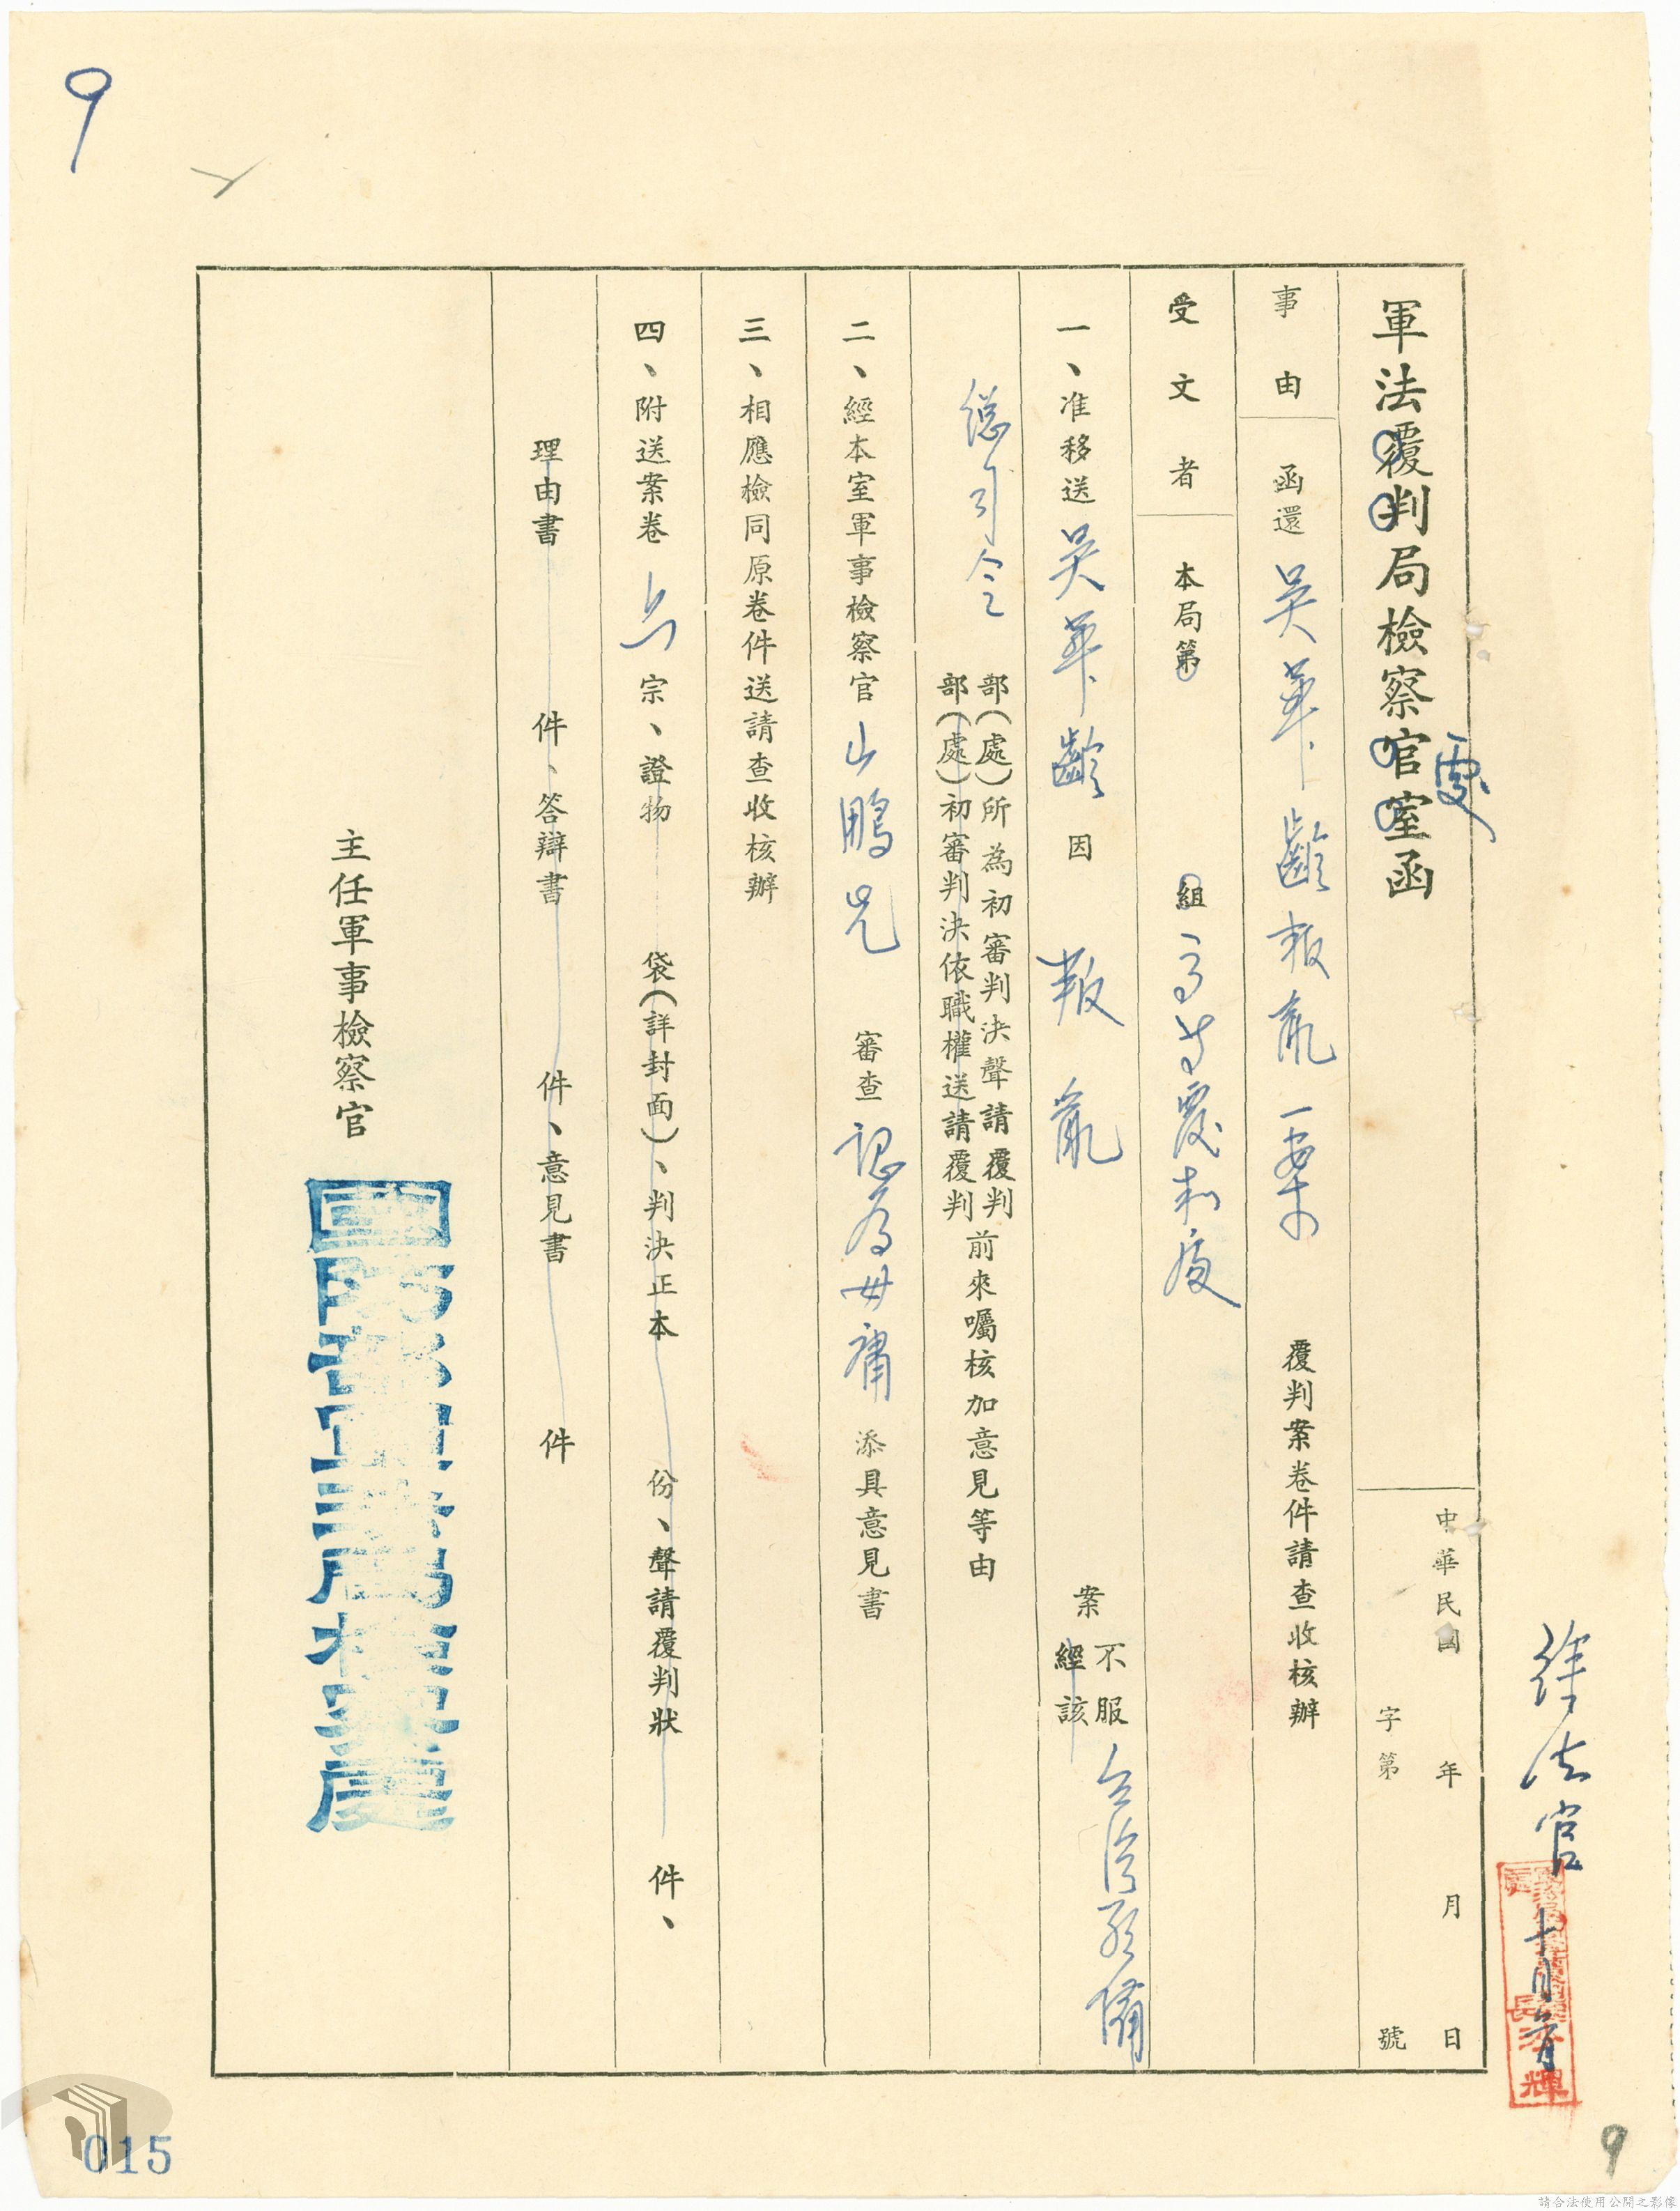 9
徐法官
軍法覆判局檢察官室函
處
中華民國 年 月 日
字第 號
事由 函還 吳華齡叛亂一案 覆判案卷件請查收核辦
受文者 本局第 組 高等覆判庭
一、准移送 吳華齡 因 叛亂 案 不服 台灣警備
經該
總司令 部(處)所為初審判決聲請覆判
部(處)初審判決依職權送請覆判
前來囑核加意見等由
二、經本室軍事檢察官 審查 認為毋庸 添具意見書
三、相應檢同原卷件送請查收核辦
四、附送案卷 宗、證物 袋(詳封面)、判決正本 份、聲請覆判狀 件、
理由書 件、答辯書 件、意見書 件
主任軍事檢察官
國防部軍法局檢察處
015
9
請合法使用公開之影像